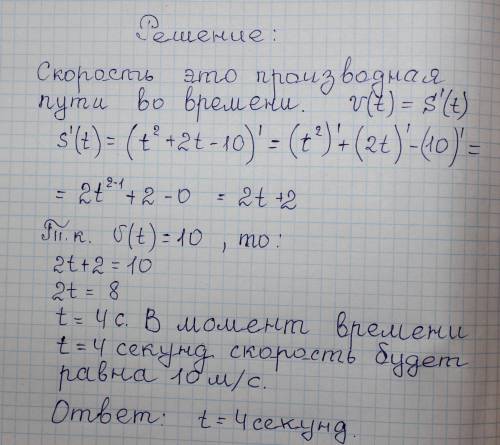 Решение:
Скорость это производная
пути во времени. v(t) = S'(t)
S'(t) = (t² + 2t - 10)' = (t²)' + (2t)' - (10)' =
= 2t²⁻¹ + 2 - 0 = 2t + 2
Т.к. v(t) = 10 , то:
2t + 2 = 10
2t = 8
t = 4 с. В момент времени
t = 4 секунд скорость будет
равна 10 м/с.
Ответ: t = 4 секунд.